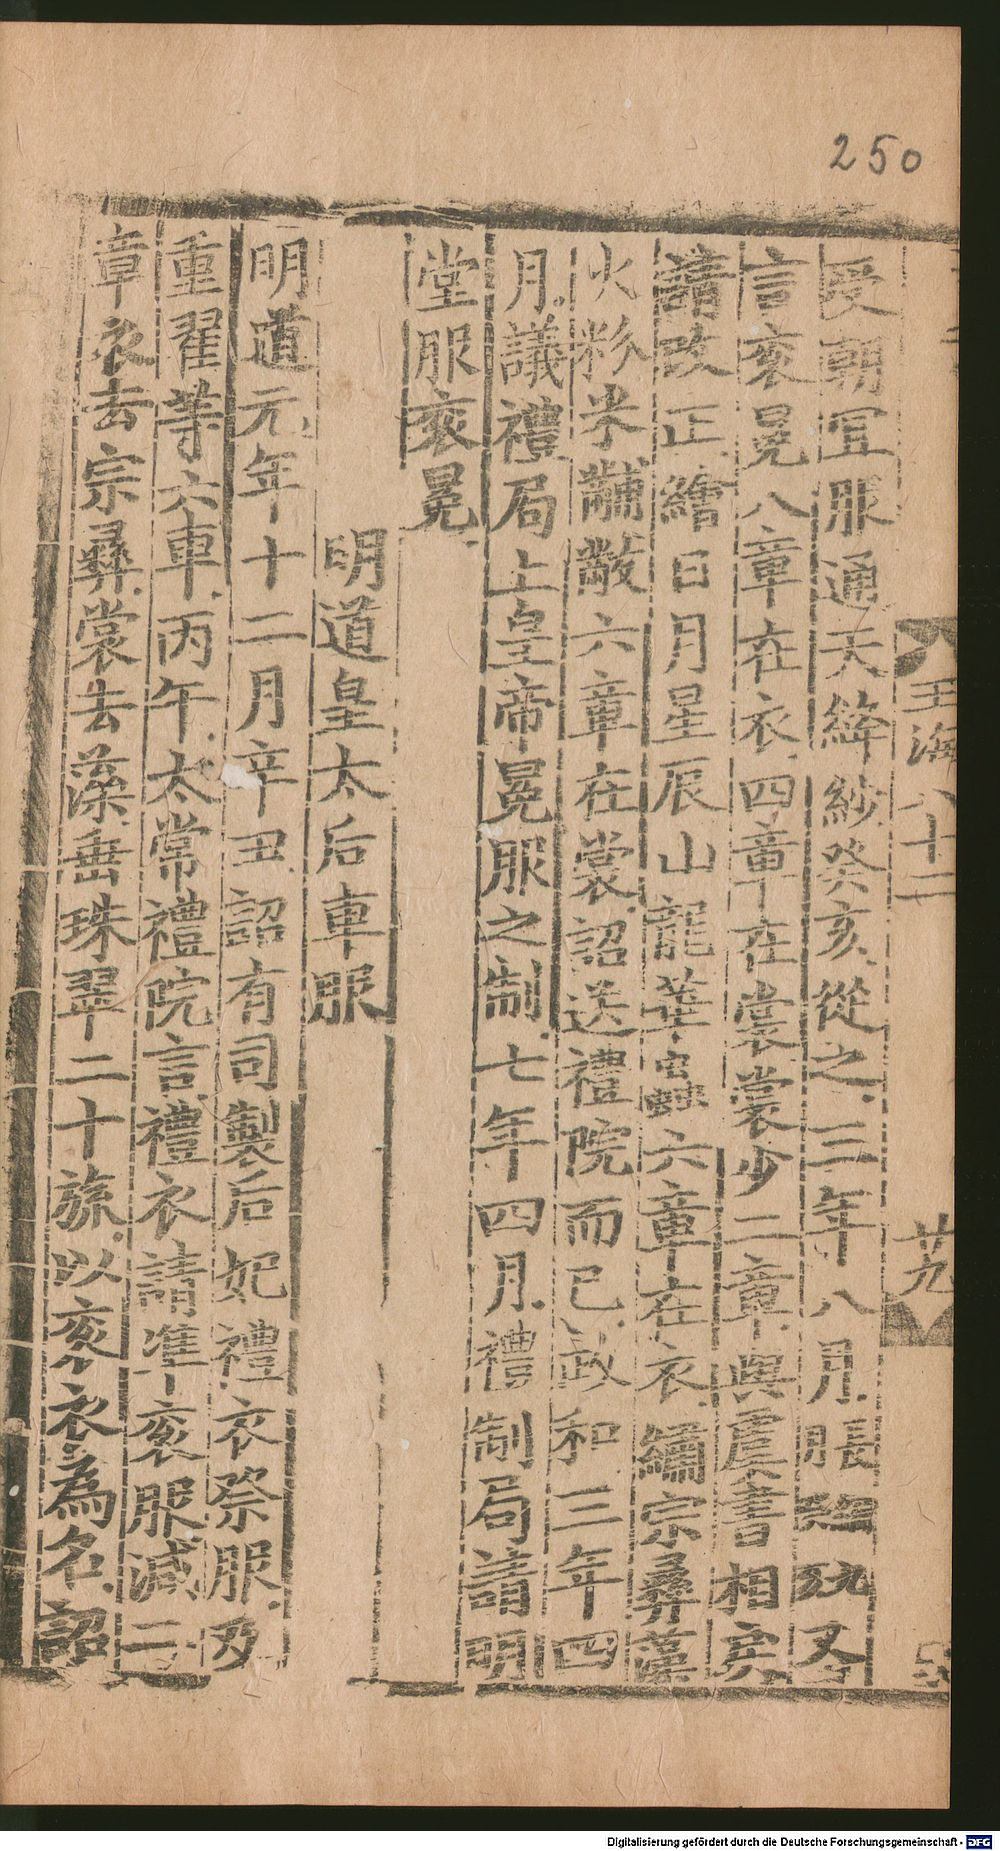 250
玉海八十二
廿九
受朝冝服通天絳紗癸亥從之三年八月張又
言衮冕八章在衣四章在裳裳少二章與虞書相戾
請改正繪日月星辰山龍華蟲六章在衣繡宗彝藻
火粉米黼黻六章在裳詔送禮院而已政和三年四
月議禮局上皇帝冕服之制七年四月禮制局請明
堂服衮冕
明道皇太后車服
明道元年十二月辛丑詔有司製后妃禮衣祭服及
重翟等六車丙午太常禮院言禮衣請準衮服減二
章衣去宗彝裳去藻垂珠翠二十旒以衮衣為名詔
Digitalisierung gefördert durch die Deutsche Forschungsgemeinschaft - DFG